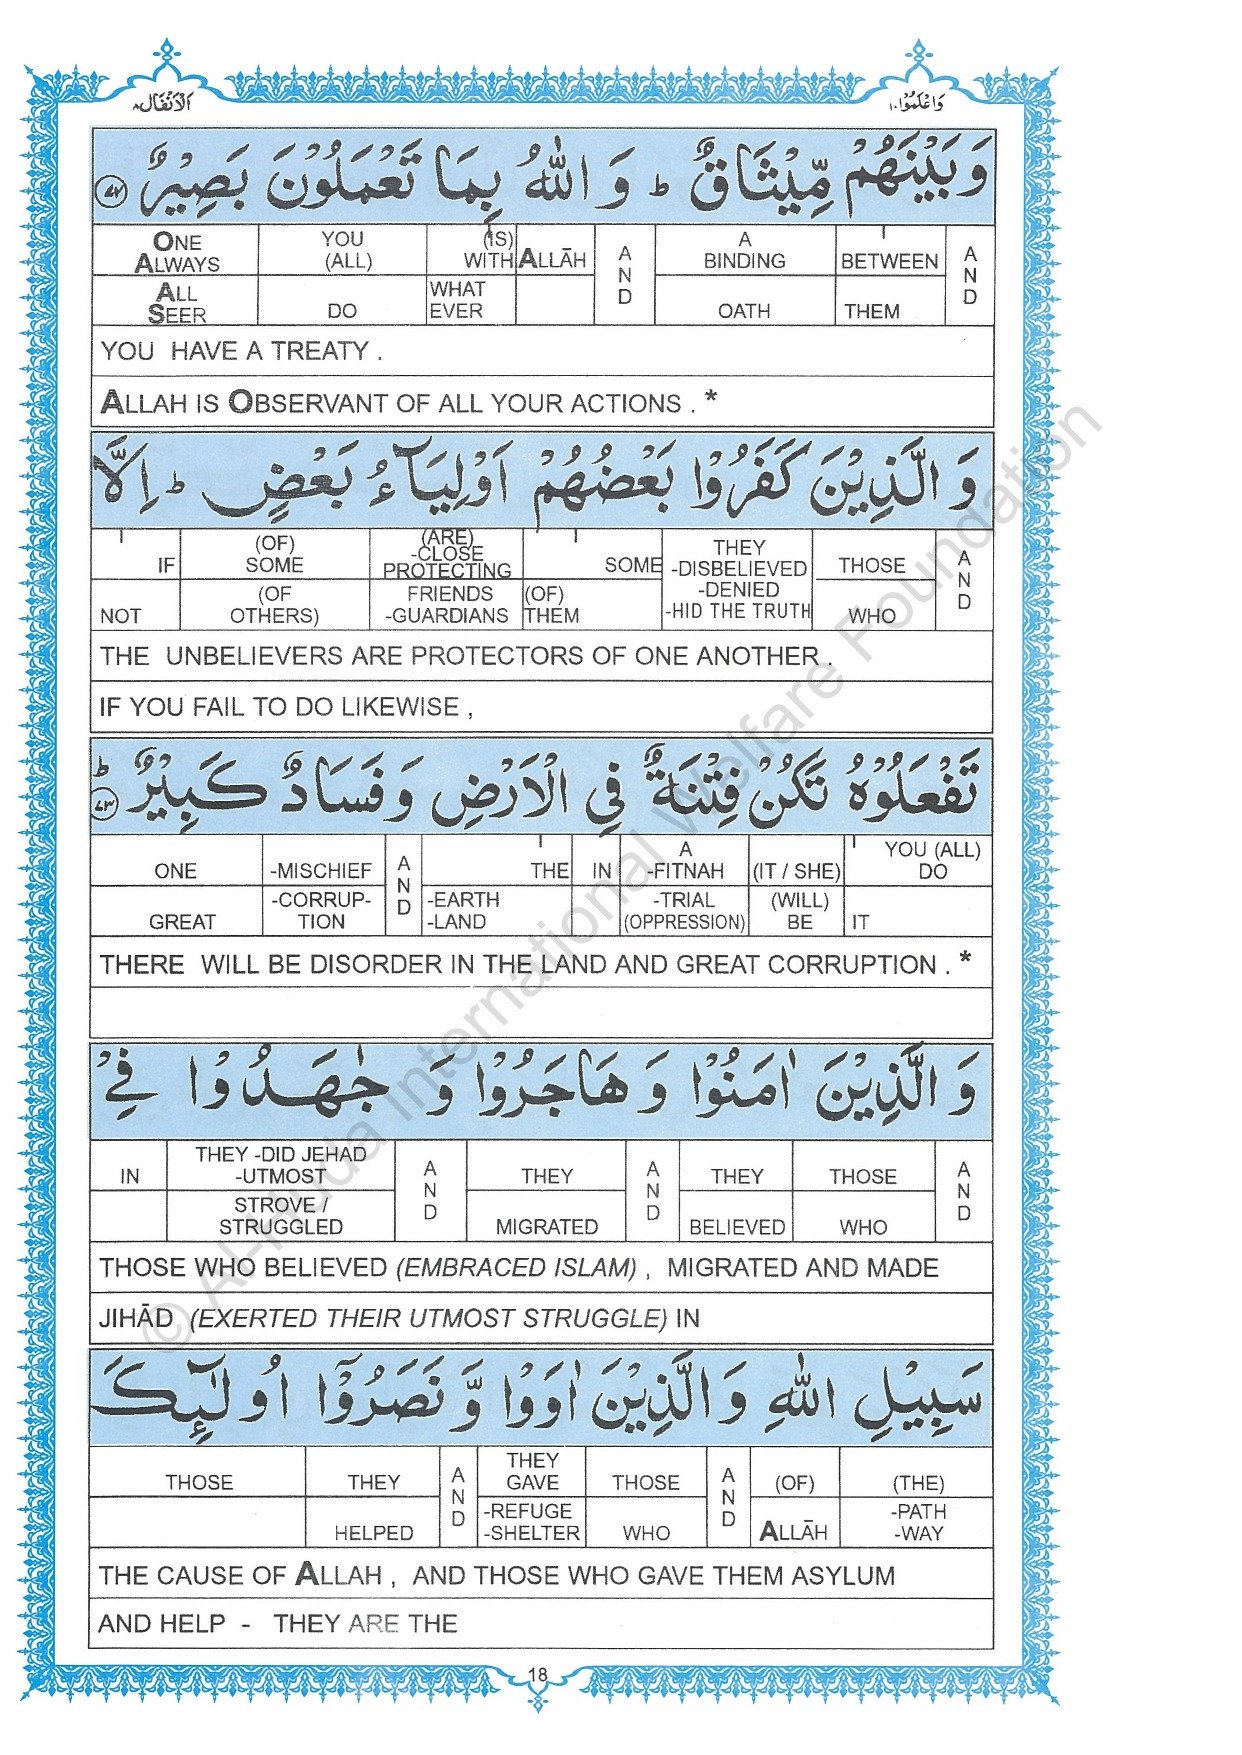 الانفال ٨
واعلموا ١٠
وَبَيْنَهُمْ مِّيْثَاقٌ ؕ وَ اللّٰهُ بِمَا تَعْمَلُوْنَ بَصِيْرٌ ﴿۷۲﴾
ONE YOU (IS) A
ALWAYS (ALL) WITH ALLĀH AND BINDING BETWEEN AND
ALL WHAT
SEER DO EVER OATH THEM
YOU HAVE A TREATY .
ALLAH IS OBSERVANT OF ALL YOUR ACTIONS . *
وَ الَّذِيْنَ كَفَرُوْا بَعْضُهُمْ اَوْلِيَآءُ بَعْضٍ ؕ اِلَّا
(OF) (ARE) THEY
IF SOME -CLOSE PROTECTING SOME -DISBELIEVED THOSE AND
(OF FRIENDS (OF) -DENIED
NOT OTHERS) -GUARDIANS THEM -HID THE TRUTH WHO
THE UNBELIEVERS ARE PROTECTORS OF ONE ANOTHER .
IF YOU FAIL TO DO LIKEWISE ,
تَفْعَلُوْهُ تَكُنْ فِتْنَةٌ فِي الْاَرْضِ وَ فَسَادٌ كَبِيْرٌ ؕ ﴿۷۳﴾
A YOU (ALL)
ONE -MISCHIEF AND THE IN -FITNAH (IT / SHE) DO
-CORRUP- -EARTH -TRIAL (WILL)
GREAT TION -LAND (OPPRESSION) BE IT
THERE WILL BE DISORDER IN THE LAND AND GREAT CORRUPTION . *
وَ الَّذِيْنَ اٰمَنُوْا وَ هَاجَرُوْا وَ جٰهَدُوْا فِيْ
THEY -DID JEHAD
IN -UTMOST AND THEY AND THEY THOSE AND
STROVE /
STRUGGLED MIGRATED BELIEVED WHO
THOSE WHO BELIEVED (EMBRACED ISLAM) , MIGRATED AND MADE
JIHĀD (EXERTED THEIR UTMOST STRUGGLE) IN
سَبِيْلِ اللّٰهِ وَ الَّذِيْنَ اٰوَوْا وَّ نَصَرُوْۤا اُولٰٓئِكَ
THEY
THOSE THEY AND GAVE THOSE AND (OF) (THE)
-REFUGE -PATH
HELPED -SHELTER WHO ALLĀH -WAY
THE CAUSE OF ALLAH , AND THOSE WHO GAVE THEM ASYLUM
AND HELP - THEY ARE THE
18
© Al-Huda International Welfare Foundation